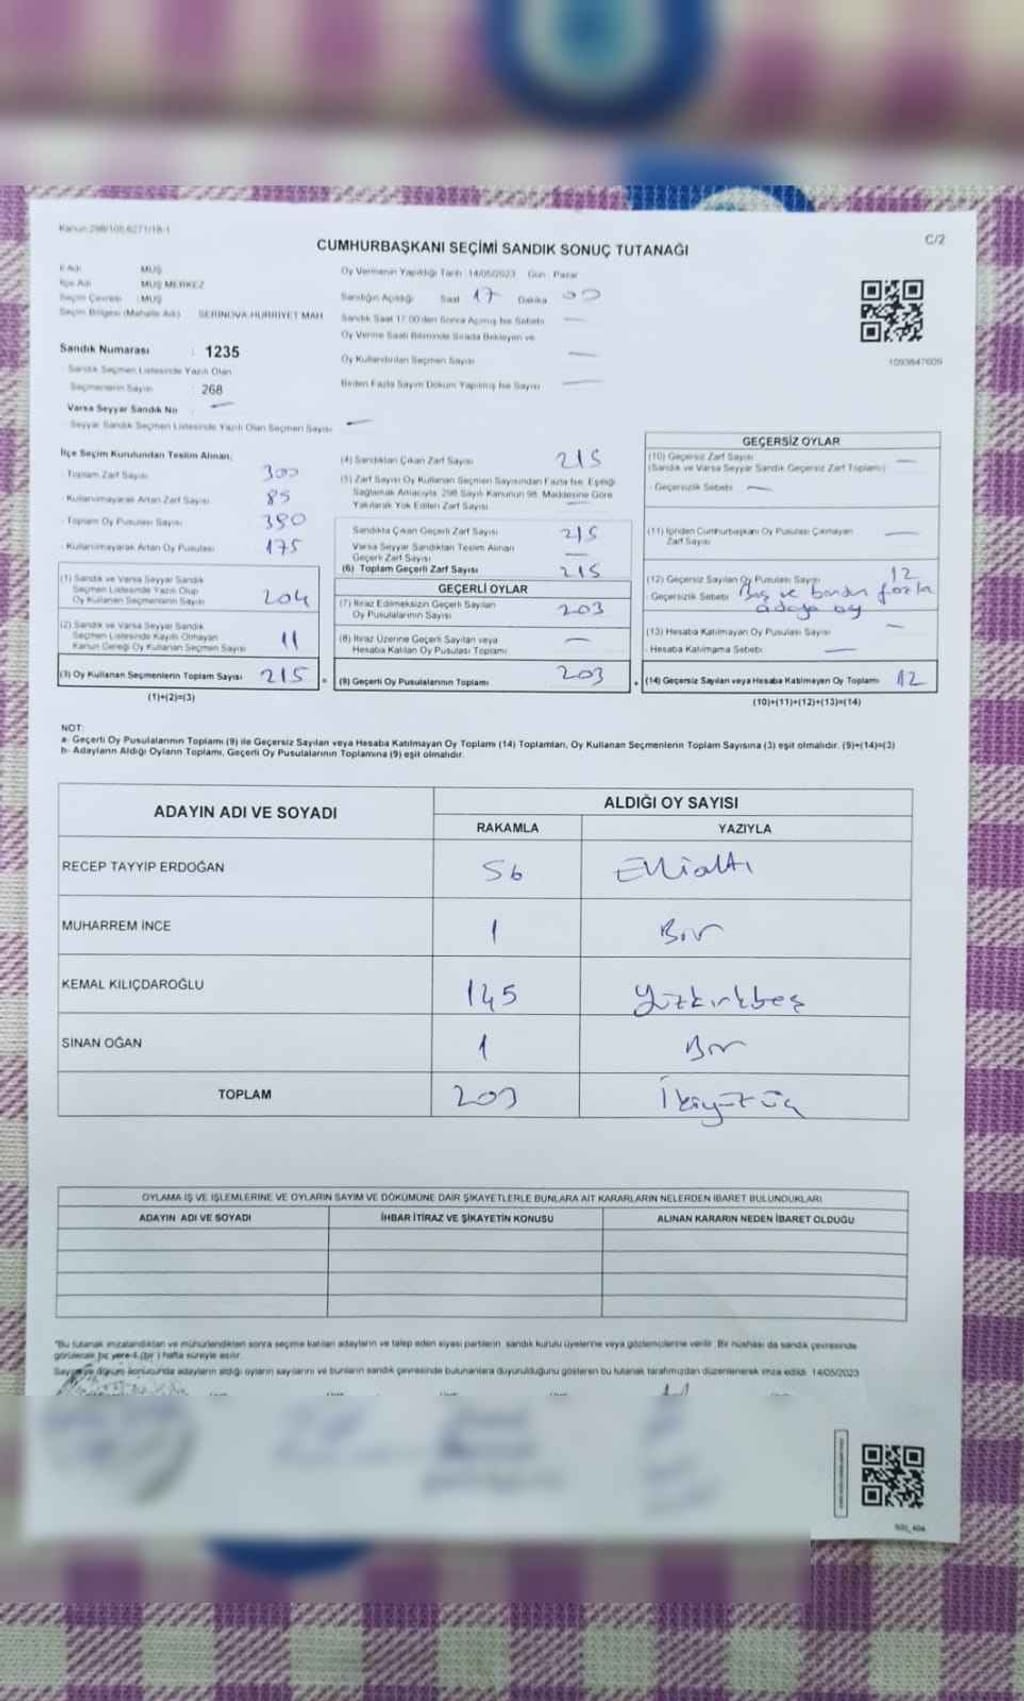 Kanun 298/105,6271/18-1
C/2
CUMHURBAŞKANI SEÇİMİ SANDIK SONUÇ TUTANAĞI
İl Adı : MUŞ
İlçe Adı : MUŞ MERKEZ
Seçim Çevresi : MUŞ
Seçim Bölgesi (Mahalle Adı) : SERİNOVA HÜRRİYET MAH
Sandık Numarası : 1235
Sandık Seçmen Listesinde Yazılı Olan
Seçmenlerin Sayısı : 268
Varsa Seyyar Sandık No : —
Seyyar Sandık Seçmen Listesinde Yazılı Olan Seçmen Sayısı —
Oy Vermenin Yapıldığı Tarih : 14/05/2023 Gün : Pazar
Sandığın Açıldığı Saat 17 Dakika 00
Sandık Saat 17:00'den Sonra Açılmış İse Sebebi —
Oy Verme Saati Bitiminde Sırada Bekleyen ve
Oy Kullandırılan Seçmen Sayısı —
Birden Fazla Sayım Döküm Yapılmış İse Sayısı —
1093847609
İlçe Seçim Kurulundan Teslim Alınan;
- Toplam Zarf Sayısı 300
- Kullanılmayarak Artan Zarf Sayısı 85
- Toplam Oy Pusulası Sayısı 390
- Kullanılmayarak Artan Oy Pusulası 175
(1) Sandık ve Varsa Seyyar Sandık
Seçmen Listesinde Yazılı Olup
Oy Kullanan Seçmenlerin Sayısı 204
(2) Sandık ve Varsa Seyyar Sandık
Seçmen Listesinde Kayıtlı Olmayan
Kanun Gereği Oy Kullanan Seçmen Sayısı 11
(3) Oy Kullanan Seçmenlerin Toplam Sayısı 215
(1)+(2)=(3)
(4) Sandıktan Çıkan Zarf Sayısı 215
(5) Zarf Sayısı Oy Kullanan Seçmen Sayısından Fazla İse, Eşitliği
Sağlamak Amacıyla 298 Sayılı Kanunun 98. Maddesine Göre
Yakılarak Yok Edilen Zarf Sayısı —
Sandıkta Çıkan Geçerli Zarf Sayısı 215
Varsa Seyyar Sandıktan Teslim Alınan
Geçerli Zarf Sayısı —
(6) Toplam Geçerli Zarf Sayısı 215
GEÇERLİ OYLAR
(7) İtiraz Edilmeksizin Geçerli Sayılan
Oy Pusulalarının Sayısı 203
(8) İtiraz Üzerine Geçerli Sayılan veya
Hesaba Katılan Oy Pusulası Toplamı —
(9) Geçerli Oy Pusulalarının Toplamı 203
GEÇERSİZ OYLAR
(10) Geçersiz Zarf Sayısı —
(Sandık ve Varsa Seyyar Sandık Geçersiz Zarf Toplamı)
- Geçersizlik Sebebi —
(11) İçinden Cumhurbaşkanı Oy Pusulası Çıkmayan
Zarf Sayısı —
(12) Geçersiz Sayılan Oy Pusulası Sayısı 12
- Geçersizlik Sebebi Boş ve birden fazla
adaya oy
(13) Hesaba Katılmayan Oy Pusulası Sayısı —
- Hesaba Katılmama Sebebi —
(14) Geçersiz Sayılan veya Hesaba Katılmayan Oy Toplamı 12
(10)+(11)+(12)+(13)=(14)
NOT:
a- Geçerli Oy Pusulalarının Toplamı (9) ile Geçersiz Sayılan veya Hesaba Katılmayan Oy Toplamı (14) Toplamları, Oy Kullanan Seçmenlerin Toplam Sayısına (3) eşit olmalıdır. (9)+(14)=(3)
b- Adayların Aldığı Oyların Toplamı, Geçerli Oy Pusulalarının Toplamına (9) eşit olmalıdır.
ADAYIN ADI VE SOYADI
ALDIĞI OY SAYISI
RAKAMLA YAZIYLA
RECEP TAYYİP ERDOĞAN 56 Ellialtı
MUHARREM İNCE 1 Bir
KEMAL KILIÇDAROĞLU 145 Yüzkırkbeş
SİNAN OĞAN 1 Bir
TOPLAM 203 İkiyüzüç
OYLAMA İŞ VE İŞLEMLERİNE VE OYLARIN SAYIM VE DÖKÜMÜNE DAİR ŞİKAYETLERLE BUNLARA AİT KARARLARIN NELERDEN İBARET BULUNDUKLARI
ADAYIN ADI VE SOYADI İHBAR İTİRAZ VE ŞİKAYETİN KONUSU ALINAN KARARIN NEDEN İBARET OLDUĞU
"Bu tutanak imzalandıktan ve mühürlendikten sonra seçime katılan adayların ve talep eden siyasi partilerin sandık kurulu üyelerine veya gözlemcilerine verilir. Bir nüshası da sandık çevresinde
görülecek bir yere 1 (bir) hafta süreyle asılır.
Sayım ve döküm sonucunda adayların aldığı oyların sayılarını ve bunların sandık çevresinde bulunanlara duyurulduğunu gösteren bu tutanak tarafımızdan düzenlenerek imza edildi. 14/05/2023